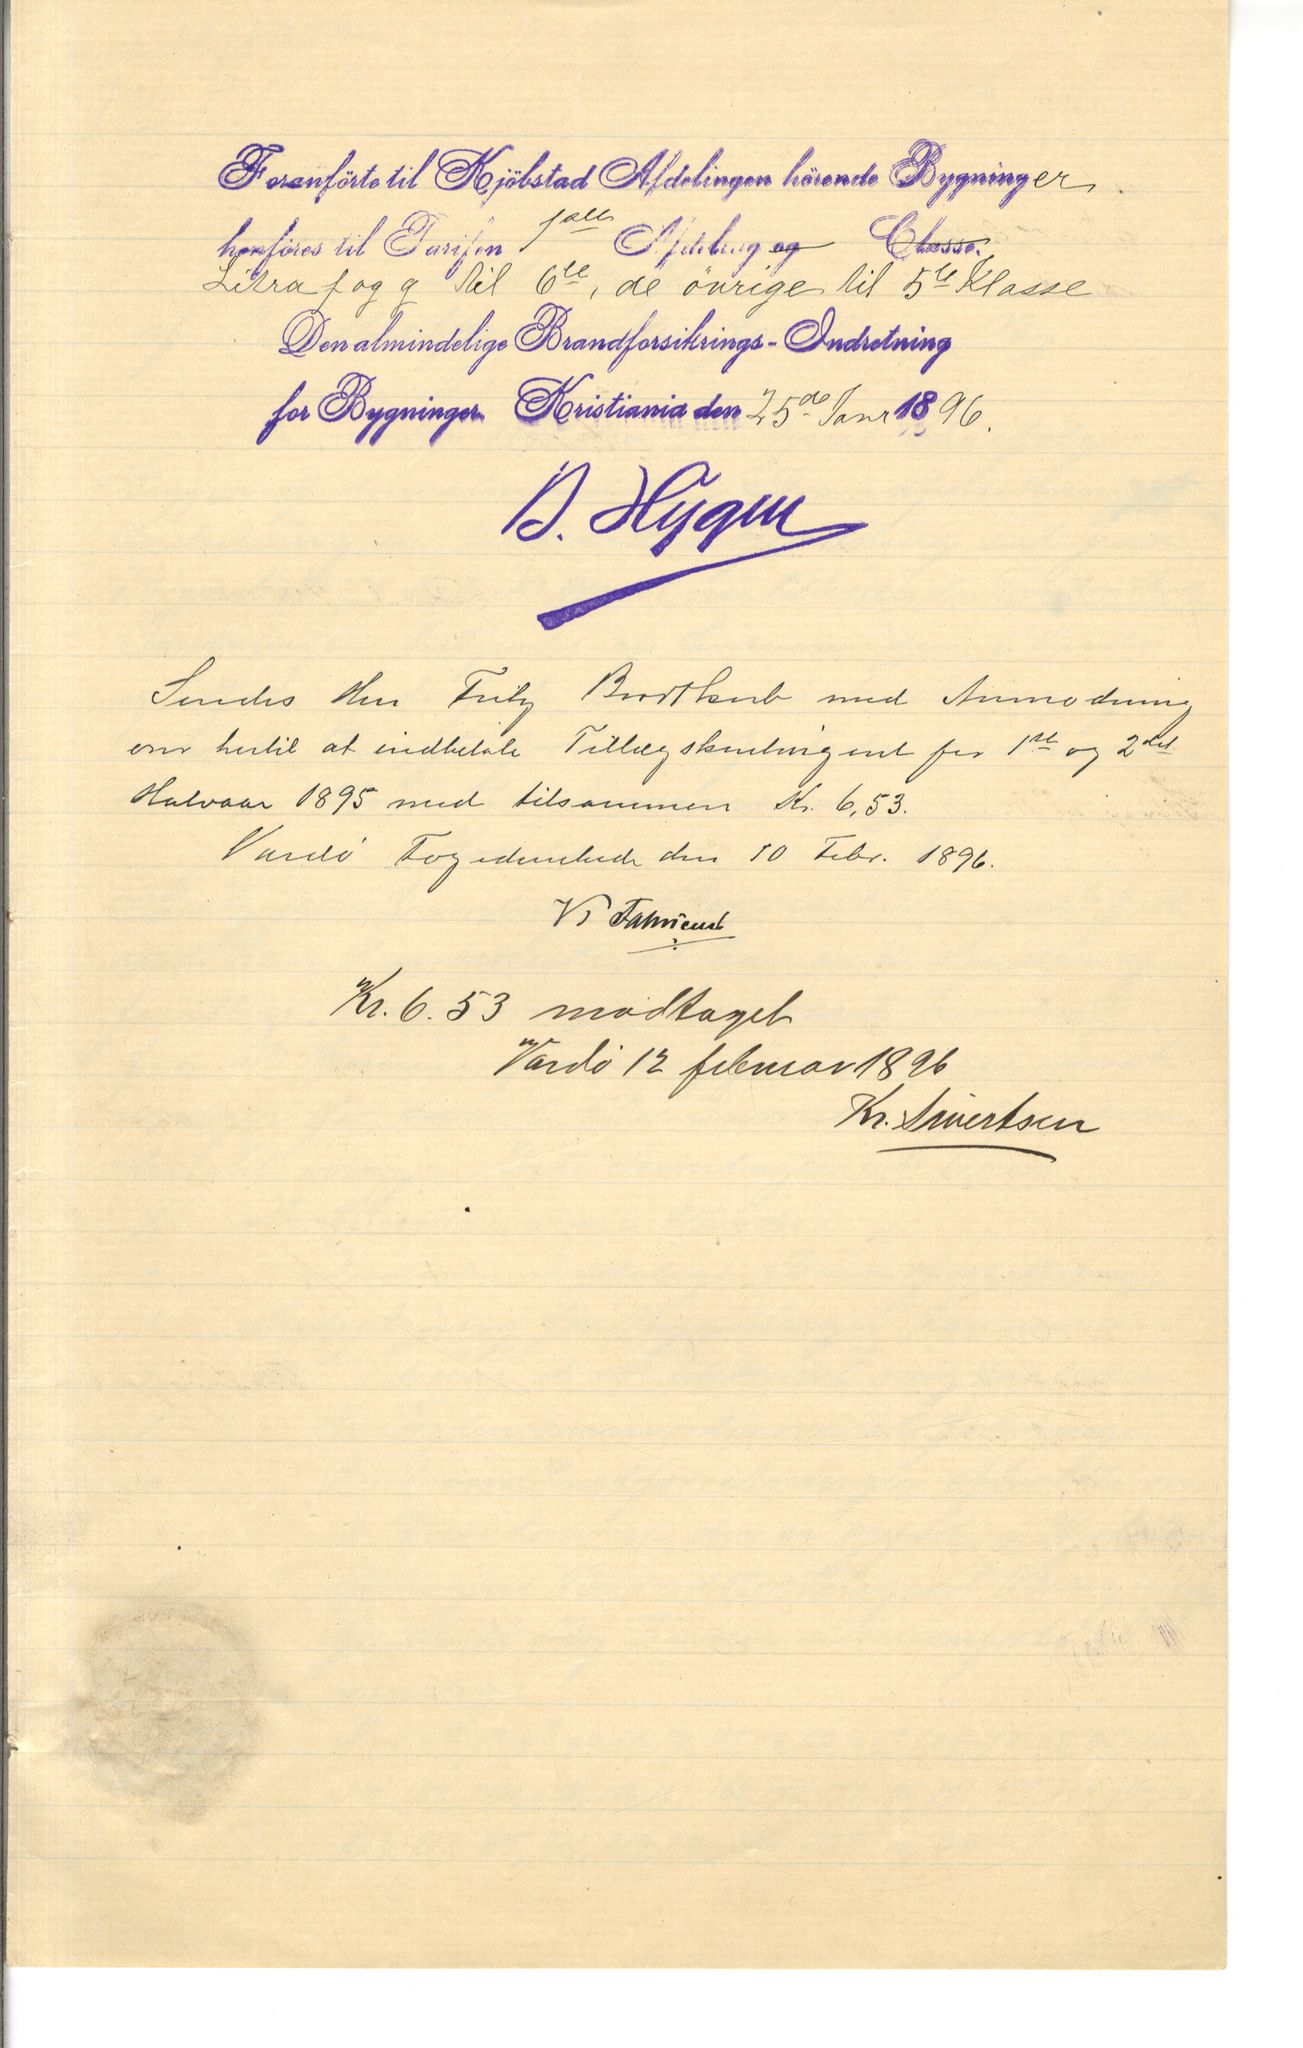 Foranförte til Kjöbstad Afdelingen hörende Bygninger
henföres til Tarifen 1ste Afdeling og Classe.
Litra f og g til 6te, de övrige til 5te Klasse
Den almindelige Brandforsikrings-Indretning
for Bygninger. Kristiania den 25de Janr 1896.
D. Hygen
Sendes Herr Fritz Brodtkorb med Anmodning
om hertil at indbetale Tillægskontingent for 1ste og 2det
Halvaar 1895 med tilsammen Kr. 6,53.
Vardö Fogedembede den 10 Febr. 1896.
Kr. 6.53 modtaget
Vardö 12 februar 1896
Kr. Sivertsen